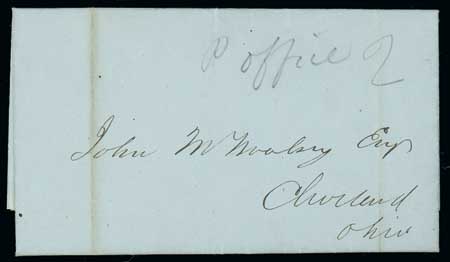 P office 2
John M Woolsey Esqr
Cleveland
Ohio